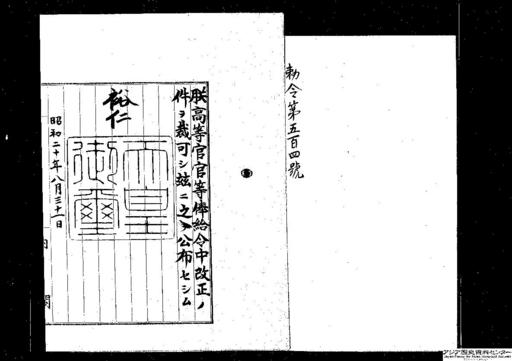 勅令第五百四號
朕高等官官等俸給令中改正ノ
件ヲ裁可シ玆ニ之ヲ公布セシム
裕仁
天皇
御璽
昭和二十年八月三十一日
内閣
アジア歴史資料センター